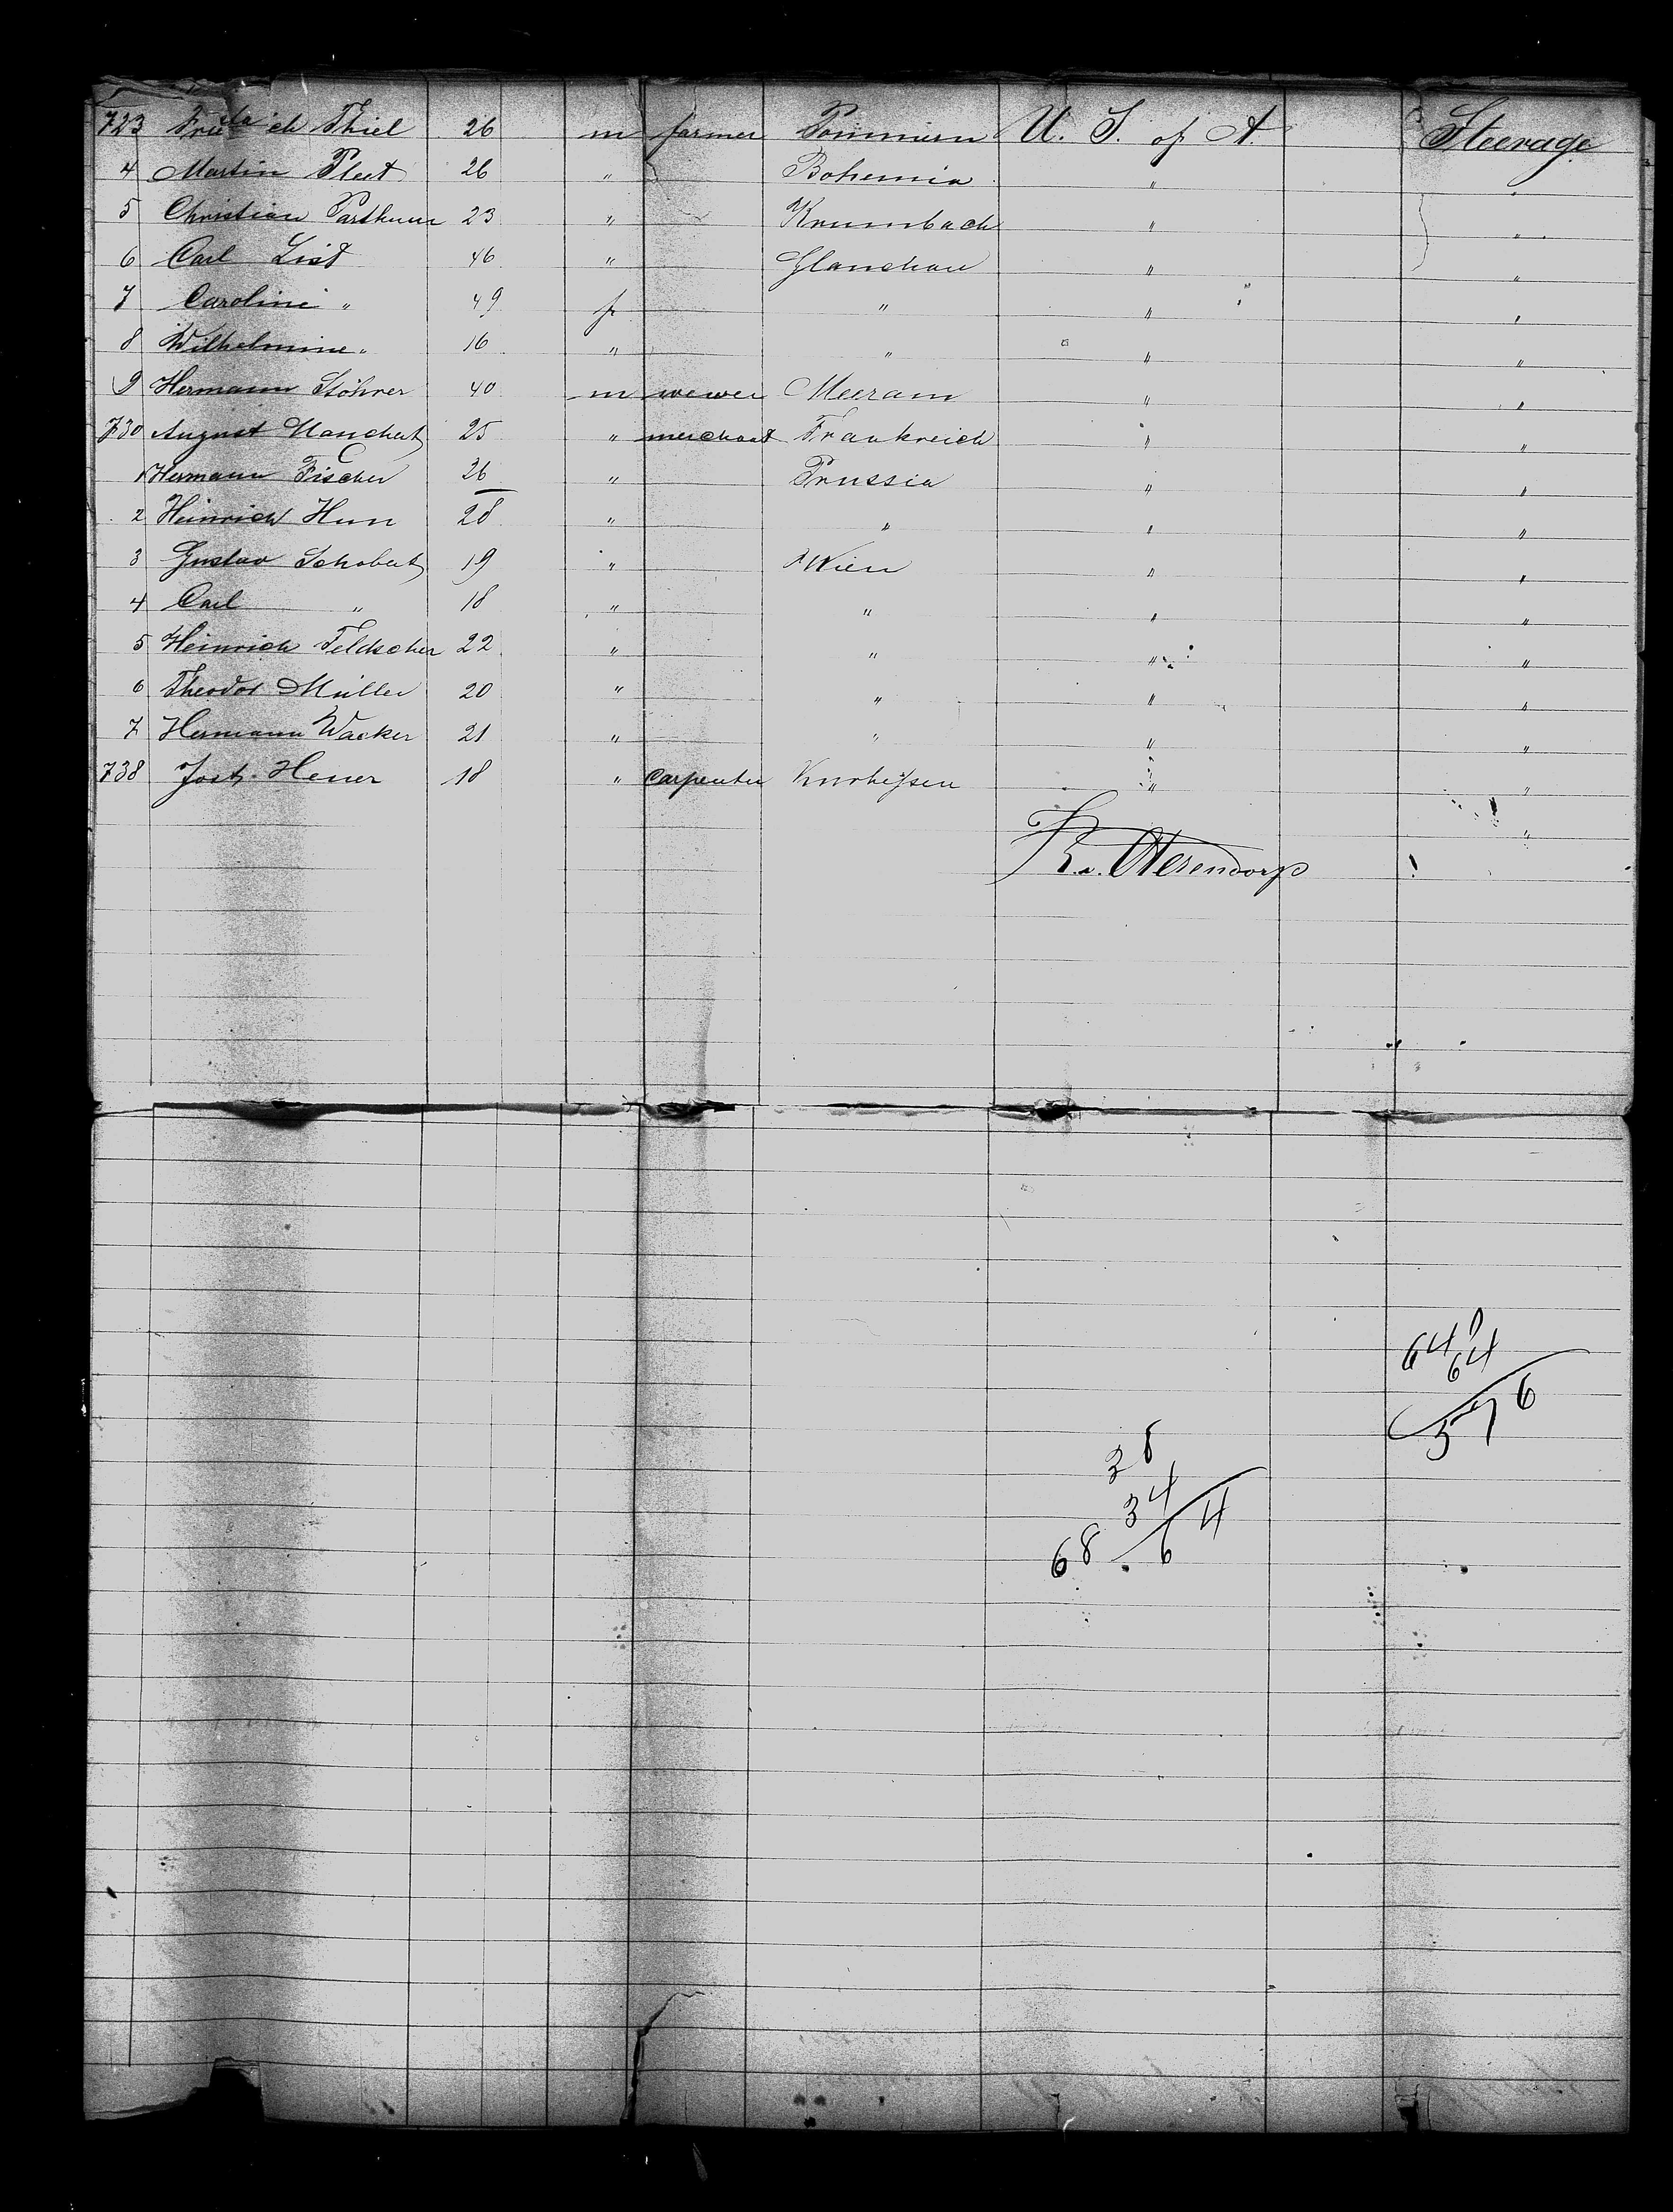 723 Friedrich Thiel 26 m farmer Pommern U. S. of A. Steerage
4 Martin Pleet 26 " Bohemia " "
5 Christian Parthum 23 " Krumbach " "
6 Carl List 46 " Glauchau " "
7 Caroline " 49 f " " "
8 Wilhelmine " 16 " " " "
9 Hermann Stöhrer 40 m wewer Meeram " "
730 August 25 " merchant Frankreich " "
1 Hermann Fischer 26 " Prussia " "
2 Heinrich Hun 28 " " " "
3 Gustav Schobert 19 " Wien " "
4 Carl " 18 " " " "
5 Heinrich Feldscher 22 " " " "
6 Theodor Müller 20 " " " "
7 Hermann Wacker 21 " " " "
738 Jost Heuer 18 " Carpenter Kurheßen " "
"
640
64
576
38
34
68 . 64